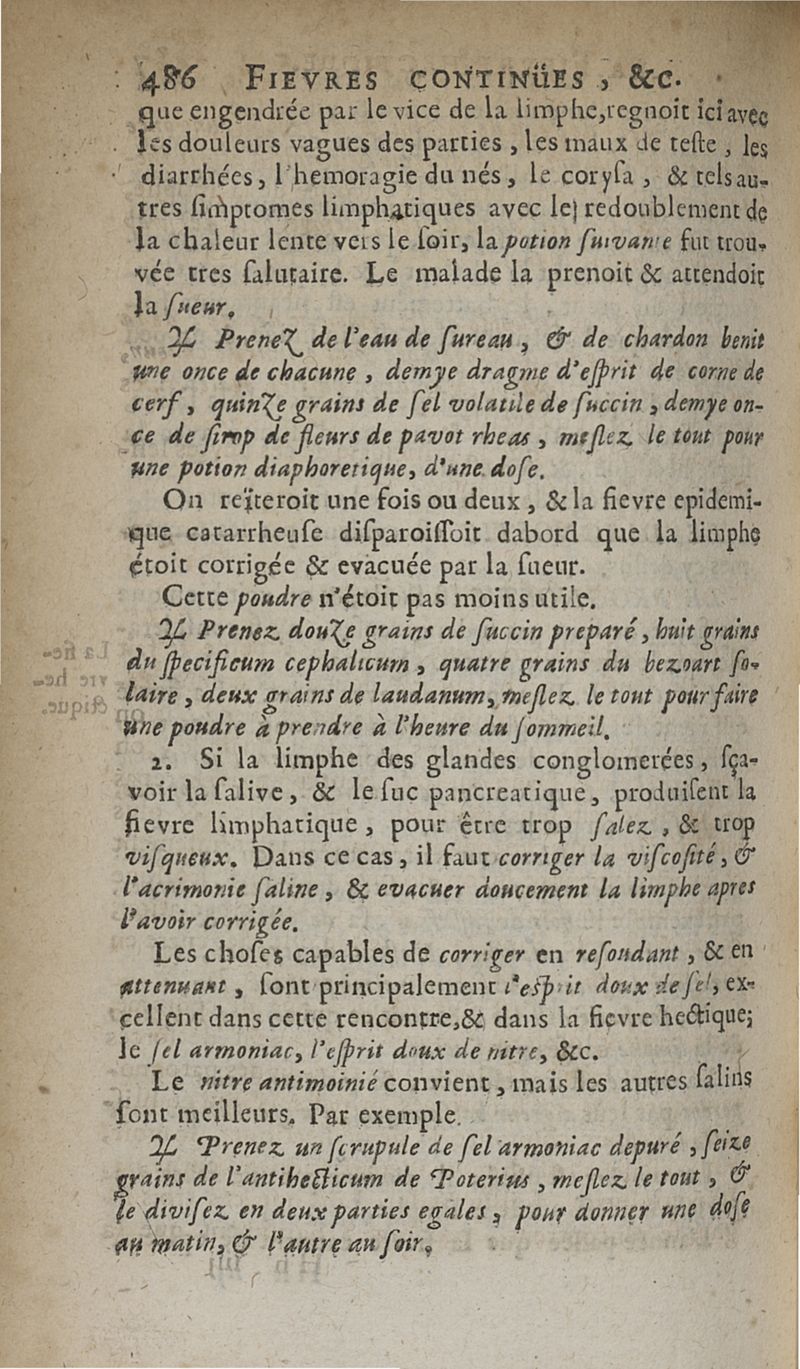 486 FIEVRES CONTINÜES, &c.
que engendrée par le vice de la limphe, regnoit ici avec
les douleurs vagues des parties, les maux de teſte, les
diarrhées, l'hemoragie du nés, le coryſa, & tels au-
tres ſimptomes limphatiques avec le redoublement de
la chaleur lente vers le ſoir, la potion ſuivante fut trou-
vée tres ſalutaire. Le malade la prenoit & attendoit
la ſueur.
♃ Prenez de l'eau de ſureau, & de chardon benit
une once de chacune, demye dragme d'eſprit de corne de
cerf, quinze grains de ſel volatile de ſuccin, demye on-
ce de ſirop de fleurs de pavot rheas, meſlez le tout pour
une potion diaphoretique, d'une doſe.
On reïteroit une fois ou deux, & la fievre epidemi-
que catarrheuſe diſparoiſſoit dabord que la limphe
étoit corrigée & evacuée par la ſueur.
Cette poudre n'étoit pas moins utile.
♃ Prenez douze grains de ſuccin preparé, huit grains
du ſpecificum cephalicum, quatre grains du bezoart ſo-
laire, deux grains de laudanum, meſlez le tout pour faire
une poudre à prendre à l'heure du ſommeil.
2. Si la limphe des glandes conglomerées, ſça-
voir la ſalive, & le ſuc pancreatique, produiſent la
fievre limphatique, pour être trop ſalez, & trop
viſqueux. Dans ce cas, il faut corriger la viſcoſité, &
l'acrimonie ſaline, & evacuer doucement la limphe apres
l'avoir corrigée.
Les choſes capables de corriger en reſoudant, & en
attenuant, ſont principalement l'eſprit doux de ſel, ex-
cellent dans cette rencontre, & dans la fievre hectique;
le ſel armoniac, l'eſprit doux de nitre, &c.
Le nitre antimoinié convient, mais les autres ſalins
ſont meilleurs. Par exemple.
♃ Prenez un ſcrupule de ſel armoniac depuré, ſeize
grains de l'antihecticum de Poterius, meſlez le tout, &
le diviſez en deux parties egales, pour donner une doſe
au matin, & l'autre au ſoir.